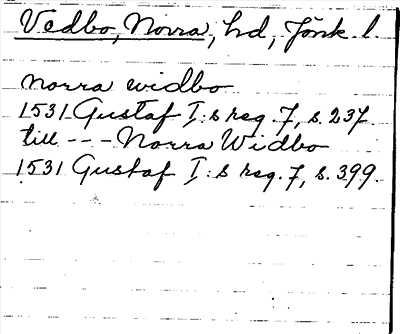 Vedbo, Norra, hd, Jönk. l
norra widbo
1531 Gustaf I:s reg. 7, s. 237.
till --- Norra Widbo
1531 Gustaf I:s reg. 7, s. 399.